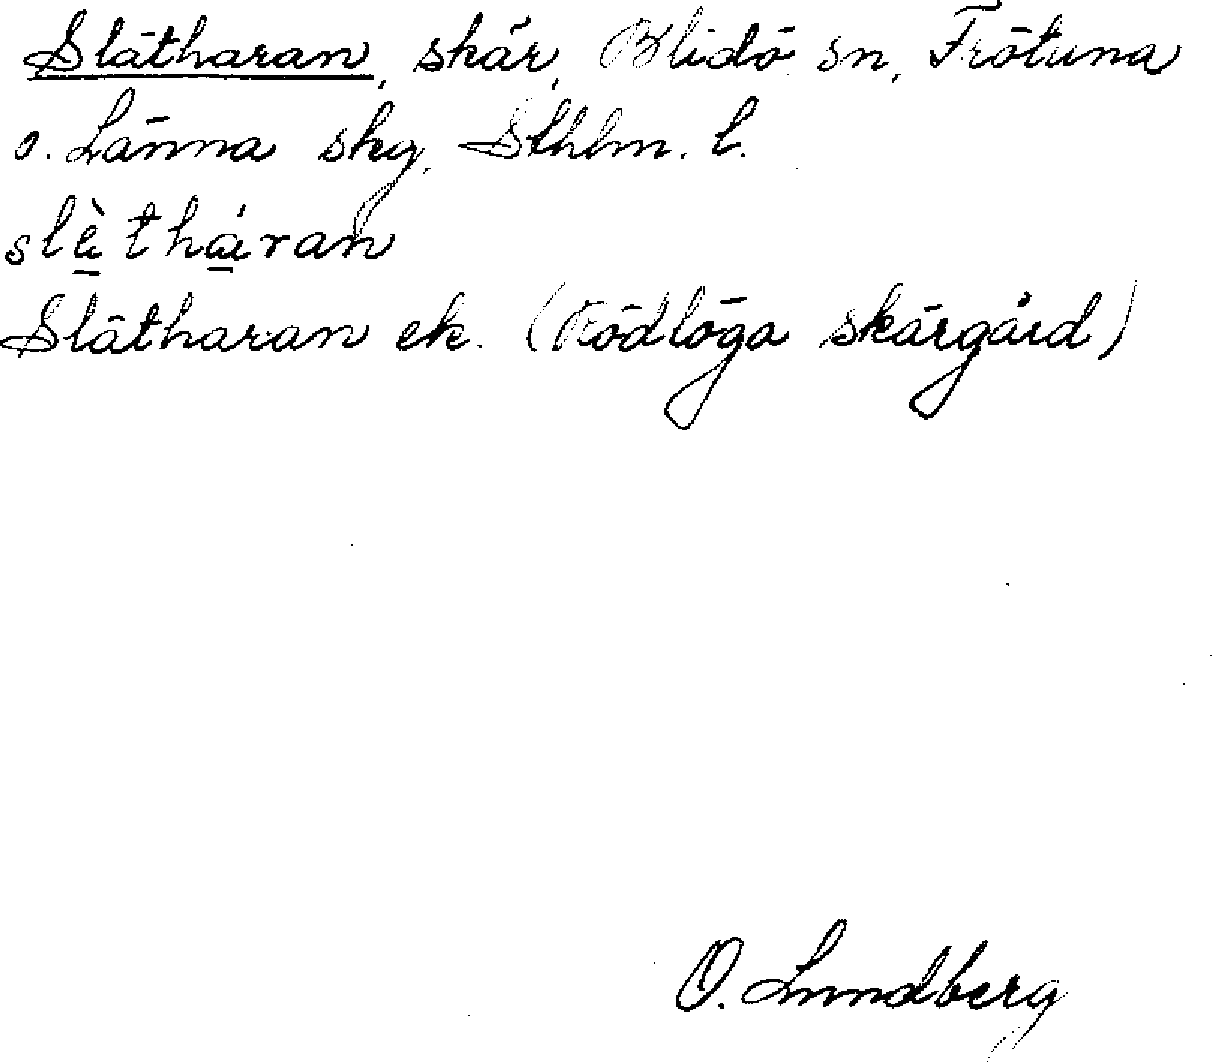 Slätharan, skär, Blidö sn, Frötuna
o. Länna skg, Sthlm. l.
slè̱thá̱ran
Slätharan ek. (Rödlöga skärgård)
O. Lundberg